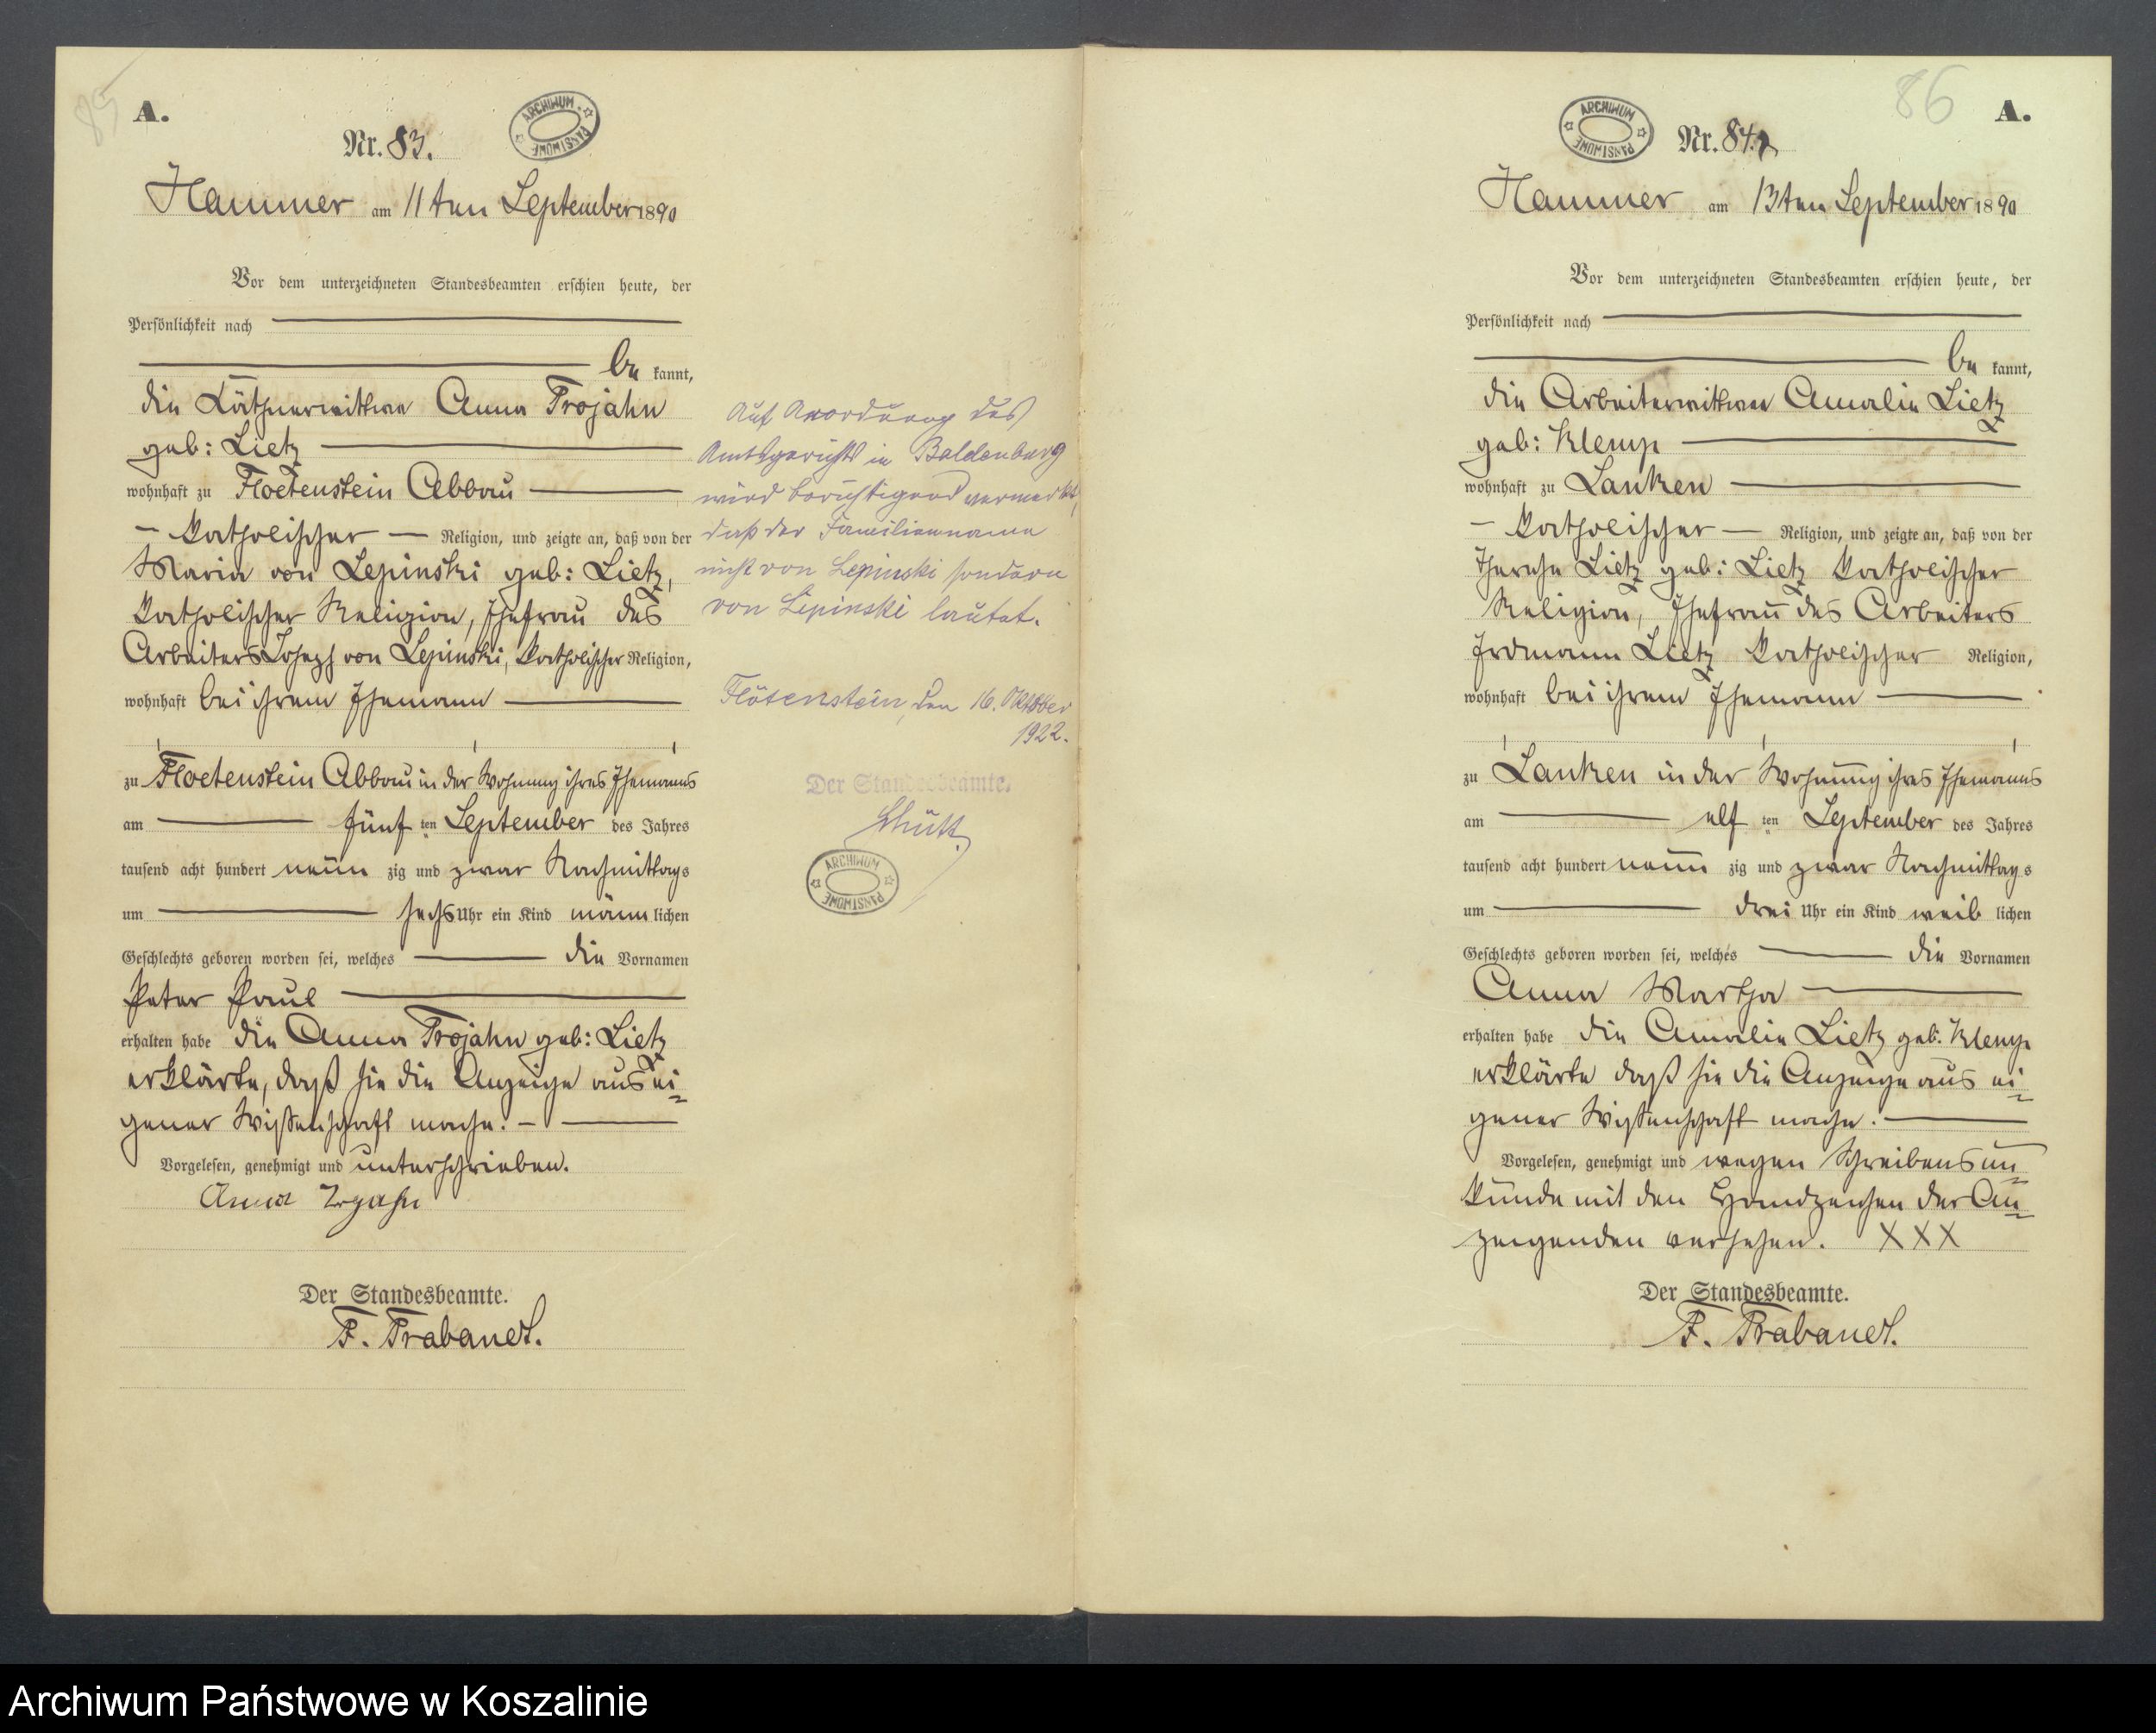 85
A.
ARCHIWUM PAŃSTWOWE
Nr. 83.
Hammer am 11ten September 1890
Vor dem unterzeichneten Standesbeamten erschien heute, der
Persönlichkeit nach
be kannt,
die Käthnerwittwe Anna Trojahn
geb: Lietz
wohnhaft zu Floetenstein Abbau
katholischer Religion, und zeigte an, daß von der
Maria von Lepinski geb: Lietz,
katholischer Religion, Ehefrau des
Arbeiters Joseph von Lepinski, katholischer Religion,
wohnhaft bei ihrem Ehemann
zu Floetenstein Abbau in der Wohnung ihres Ehemanns
am fünf ten September des Jahres
tausend acht hundert neun zig und zwar Nachmittags
um sechs Uhr ein Kind männ lichen
Geschlechts geboren worden sei, welches die Vornamen
Peter Paul
erhalten habe die Anna Trojahn geb: Lietz
erklärte, daß sie die Anzeige aus ei-
gener Wissenschaft mache. –
Vorgelesen, genehmigt und unterschrieben.
Anna Trojahn
Der Standesbeamte.
F. Trabandt.
Auf Anordnung des
Amtsgerichts in Baldenburg
wird berichtigend vermerkt,
daß der Familienname
nicht von Lepinski sondern
von Lipinski lautet.
Flötenstein, den 16. Oktober
1922.
Der Standesbeamte.
ARCHIWUM PAŃSTWOWE
86
A.
ARCHIWUM PAŃSTWOWE
Nr. 84.
Hammer am 13ten September 1890
Vor dem unterzeichneten Standesbeamten erschien heute, der
Persönlichkeit nach
be kannt,
die Arbeiterwittwe Amalie Lietz
geb: Klemp
wohnhaft zu Lanken
katholischer Religion, und zeigte an, daß von der
Therese Lietz geb: Lietz katholischer
Religion, Ehefrau des Arbeiters
Erdmann Lietz katholischer Religion,
wohnhaft bei ihrem Ehemann
zu Lanken in der Wohnung ihres Ehemanns
am elf ten September des Jahres
tausend acht hundert neun zig und zwar Nachmittags
um drei Uhr ein Kind weib lichen
Geschlechts geboren worden sei, welches die Vornamen
Anna Martha
erhalten habe die Amalie Lietz geb: Klemp
erklärte daß sie die Anzeige aus ei-
gener Wissenschaft mache.
Vorgelesen, genehmigt und wegen Schreibensun-
kunde mit den Handzeichen der An-
zeigenden versehen. XXX
Der Standesbeamte.
F. Trabandt.
Archiwum Państwowe w Koszalinie